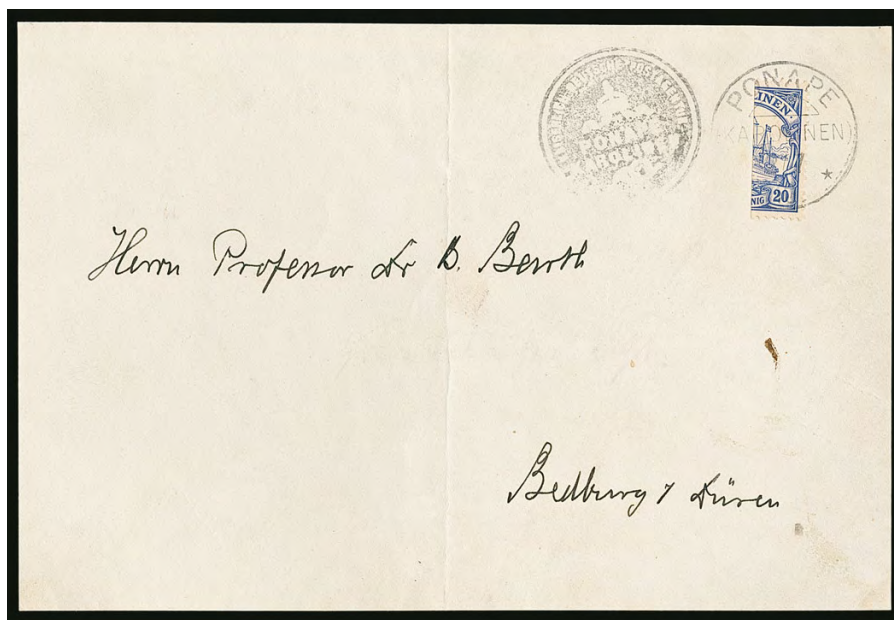 PONAPE
KAROLINEN
PONAPE
(KAROLINEN)
INEN
NIG 20
*
Herrn Professor Dr B. Berth
Bedburg / Düren